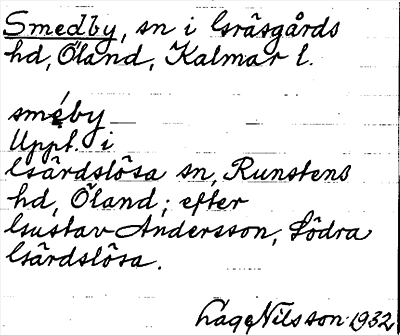 Smedby, sn i Gräsgårds
hd, Öland, Kalmar l.
sméby
Uppt. i
Gärdslösa sn, Runstens
hd, Öland; efter
Gustav Andersson, Södra
Gärdslösa.
Lage Nilsson 1932